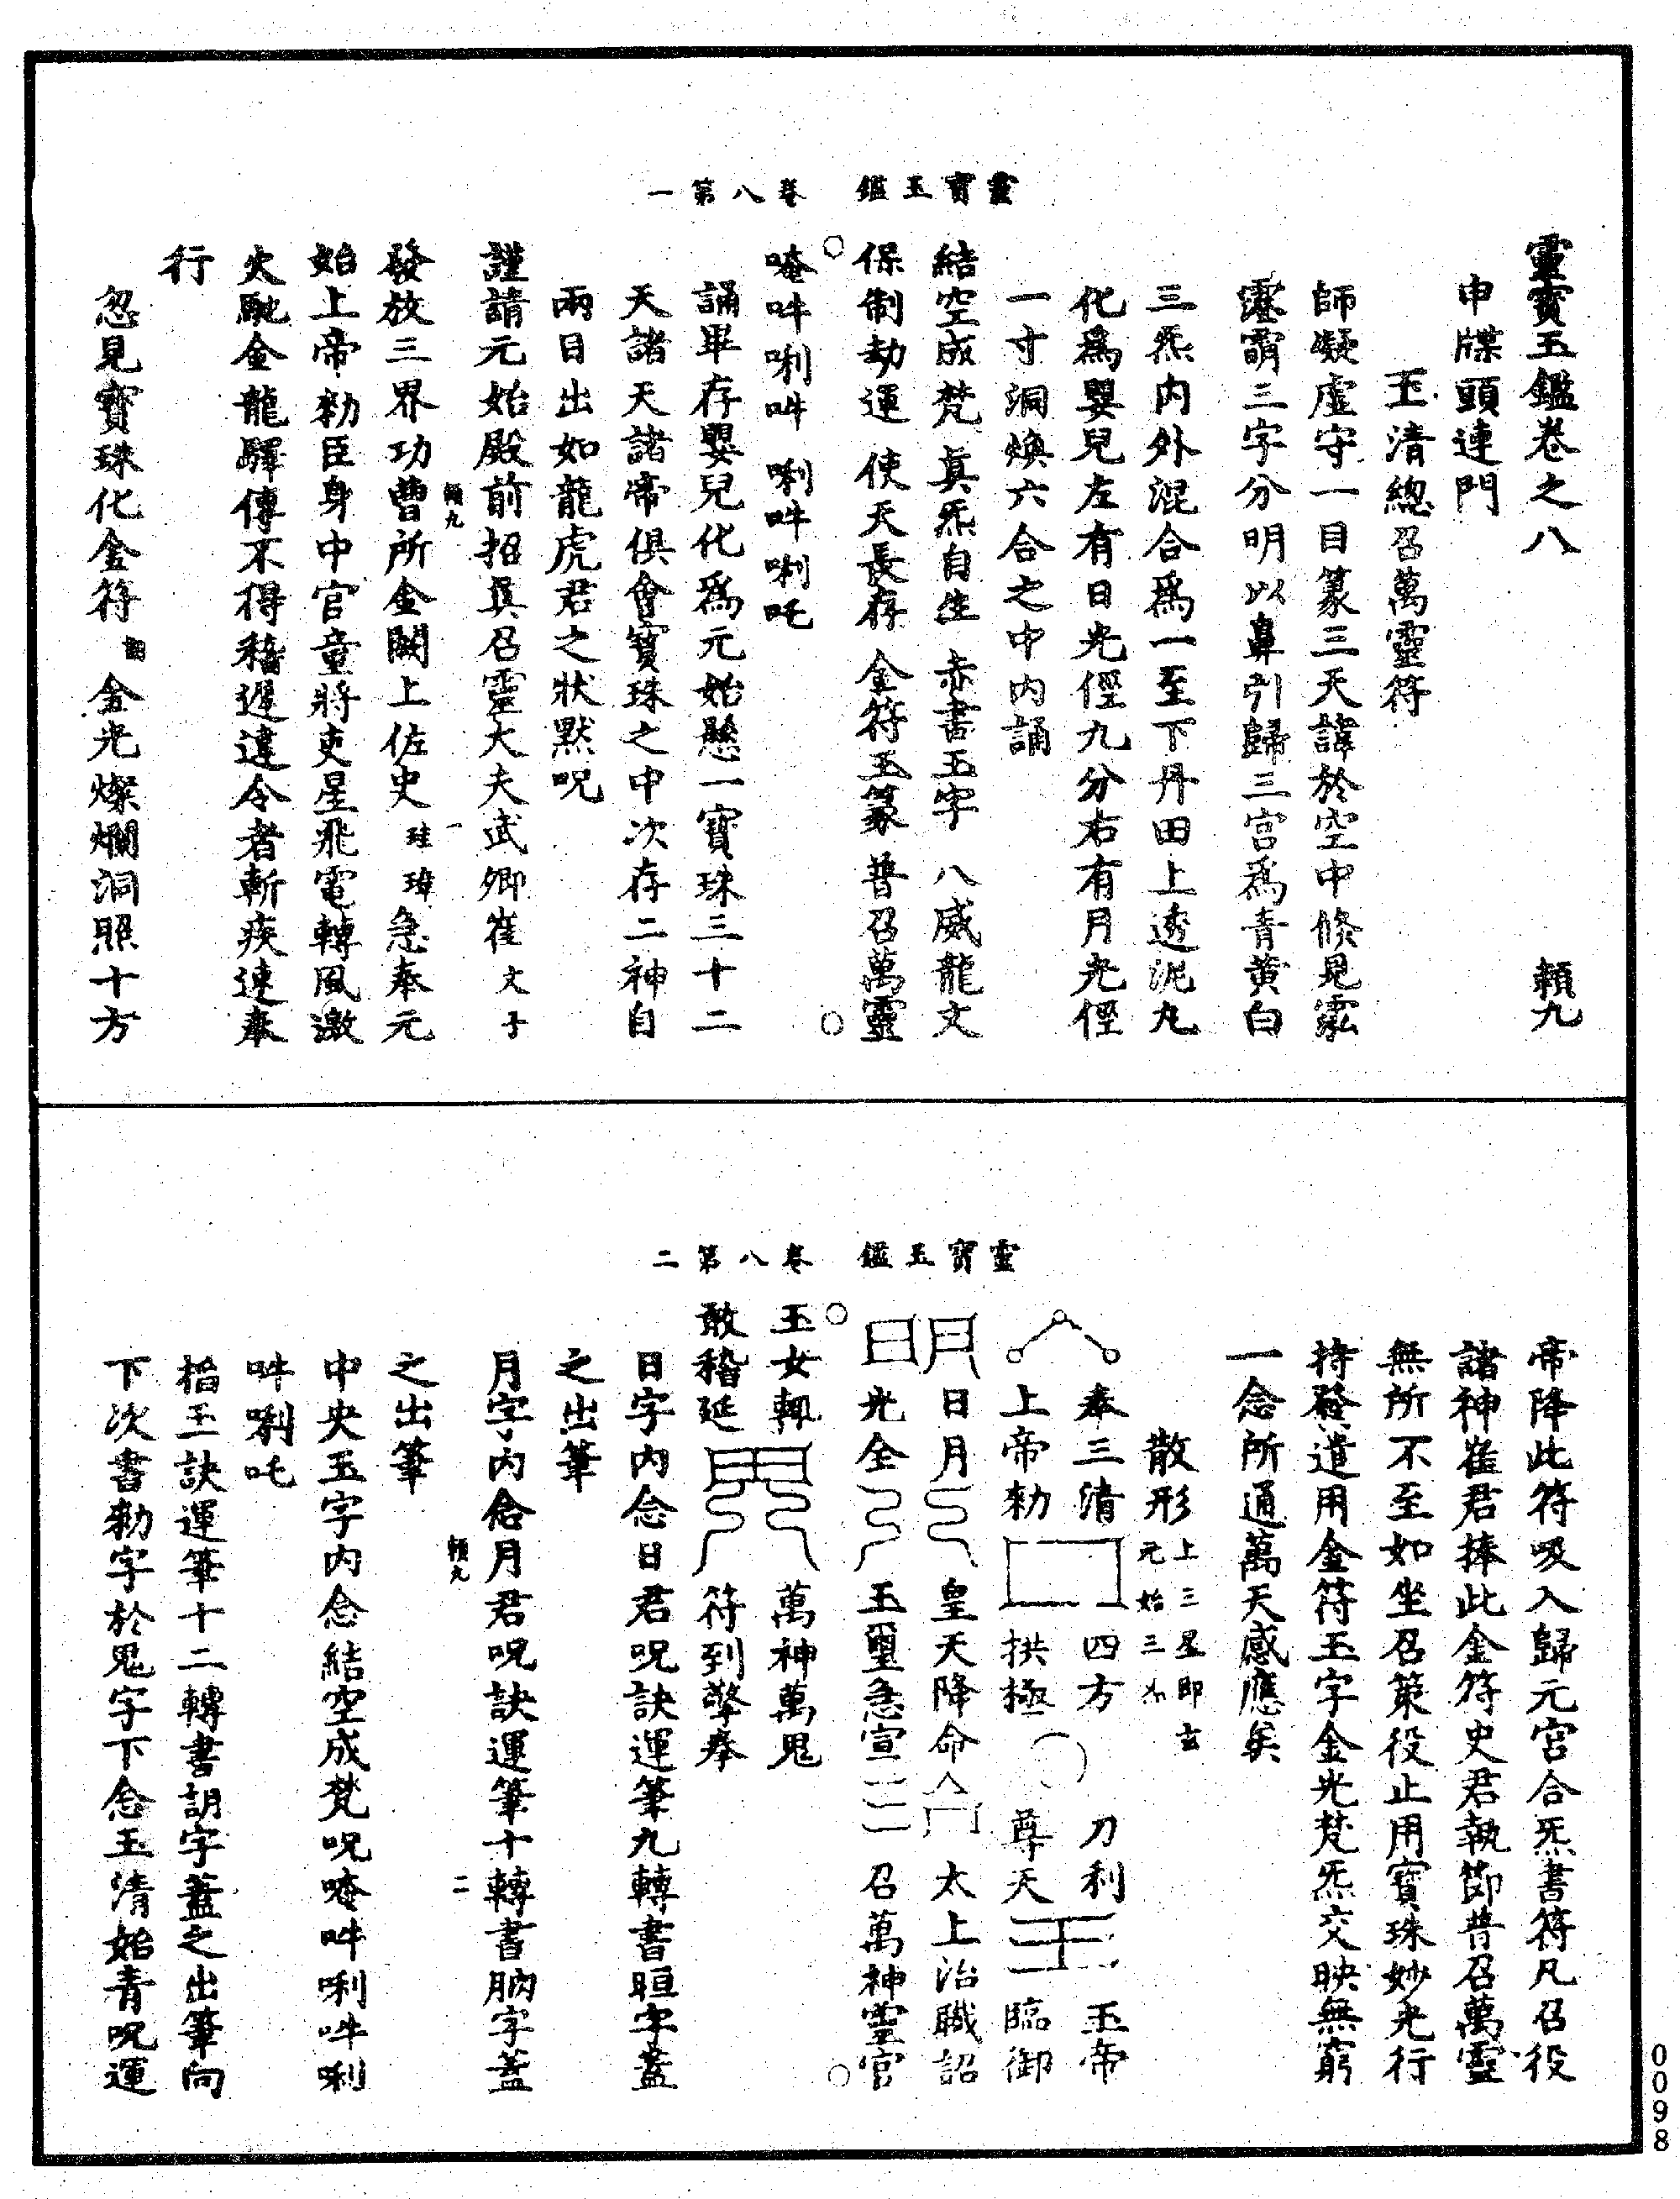 靈寶玉鑑卷之八　頼九
申牒頭連門
玉清總召萬靈符
師凝虛守一目篆三天諱於空中倏見
三字分明以鼻引歸三宮爲青黄白
三炁内外混合爲一至下丹田上透泥丸
化爲嬰兒左有日光徑九分右有月光徑
一寸洞煥六合之中内誦
結空成梵　眞炁自生　赤書玉字　八威龍文
保制劫運　使天長存　金符玉篆　普召萬靈
靈寶玉鑑　卷八第一
唵吽唎吽　唎吽唎吒
誦畢存嬰兒化爲元始懸一寶珠三十二
天諸天諸帝俱會寶珠之中次存二神自
兩目出如龍虎君之狀默呪
謹請元始殿前招眞召靈大夫武卿崔文子
頼九　一
發放三界功曹所金闕上佐史珪瑋急奉元
始上帝勑臣身中官童將吏星飛電轉風激
火馳金龍驛傳不得稽遲違令者斬疾速奉
行
忽見寶珠化金符　金光燦爛洞照十方
帝降此符吸入歸元宮合炁書符凡召役
諸神崔君捧此金符史君執節普召萬靈
無所不至如坐召策役止用寶珠妙光行
持發遣用金符玉字金光梵炁交映無窮
一念所通萬天感應矣
散形　上三星即玄元始三炁
奉三清　四方　刀利　玉帝
上帝勑　拱極　尊天　臨御
日月　皇天降命　太上治職詔
光全　玉璽急宣　召萬神靈官
靈寶玉鑑　卷八第二
玉女輙　萬神萬鬼
敢稽延　符到擎奉
日字内念日君呪訣運筆九轉書晅字蓋
之出筆
月字内念月君呪訣運筆十轉書朒字蓋
頼九　二
之出筆
中央玉字内念結空成梵呪唵吽唎吽唎
吽唎吒
掐玉訣運筆十二轉書胡字蓋之出筆向
下次書勑字於鬼字下念玉清始青呪運
0098